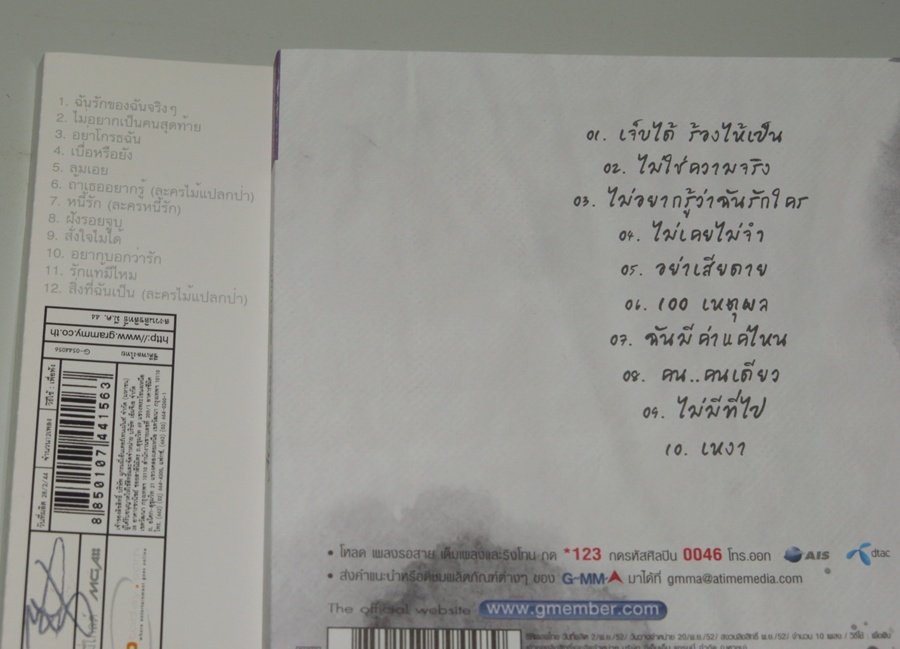 1. ฉันรักของฉันจริงๆ
2. ไม่อยากเป็นคนสุดท้าย
3. อย่าโกรธฉัน
4. เบื่อหรือยัง
5. ลมเอย
6. ถ้าเธออยากรู้ (ละครไม้แปลกป่า)
7. หนี้รัก (ละครหนี้รัก)
8. ฝังรอยจูบ
9. สั่งใจไม่ได้
10. อยากบอกว่ารัก
11. รักแท้มีไหม
12. สิ่งที่ฉันเป็น (ละครไม้แปลกป่า)
http://www.grammy.co.th
G-0544056
8 850107 441563
วันที่ผลิต 28/2/44
MGA
01. เจ็บได้ ร้องไห้เป็น
02. ไม่ใช่ความจริง
03. ไม่อยากรู้ว่าฉันรักใคร
04. ไม่เคยไม่จำ
05. อย่าเสียดาย
06. 100 เหตุผล
07. ฉันมีค่าแค่ไหน
08. คน..คนเดียว
09. ไม่มีที่ไป
10. เหงา
• โหลด เพลงรอสาย เต็มเพลงและริงโทน กด *123 กดรหัสศิลปิน 0046 โทร.ออก AIS dtac
• ส่งคำแนะนำหรือติชมผลิตภัณฑ์ต่างๆ ของ G-MM-A มาได้ที่ gmma@atimemedia.com
The official website www.gmember.com